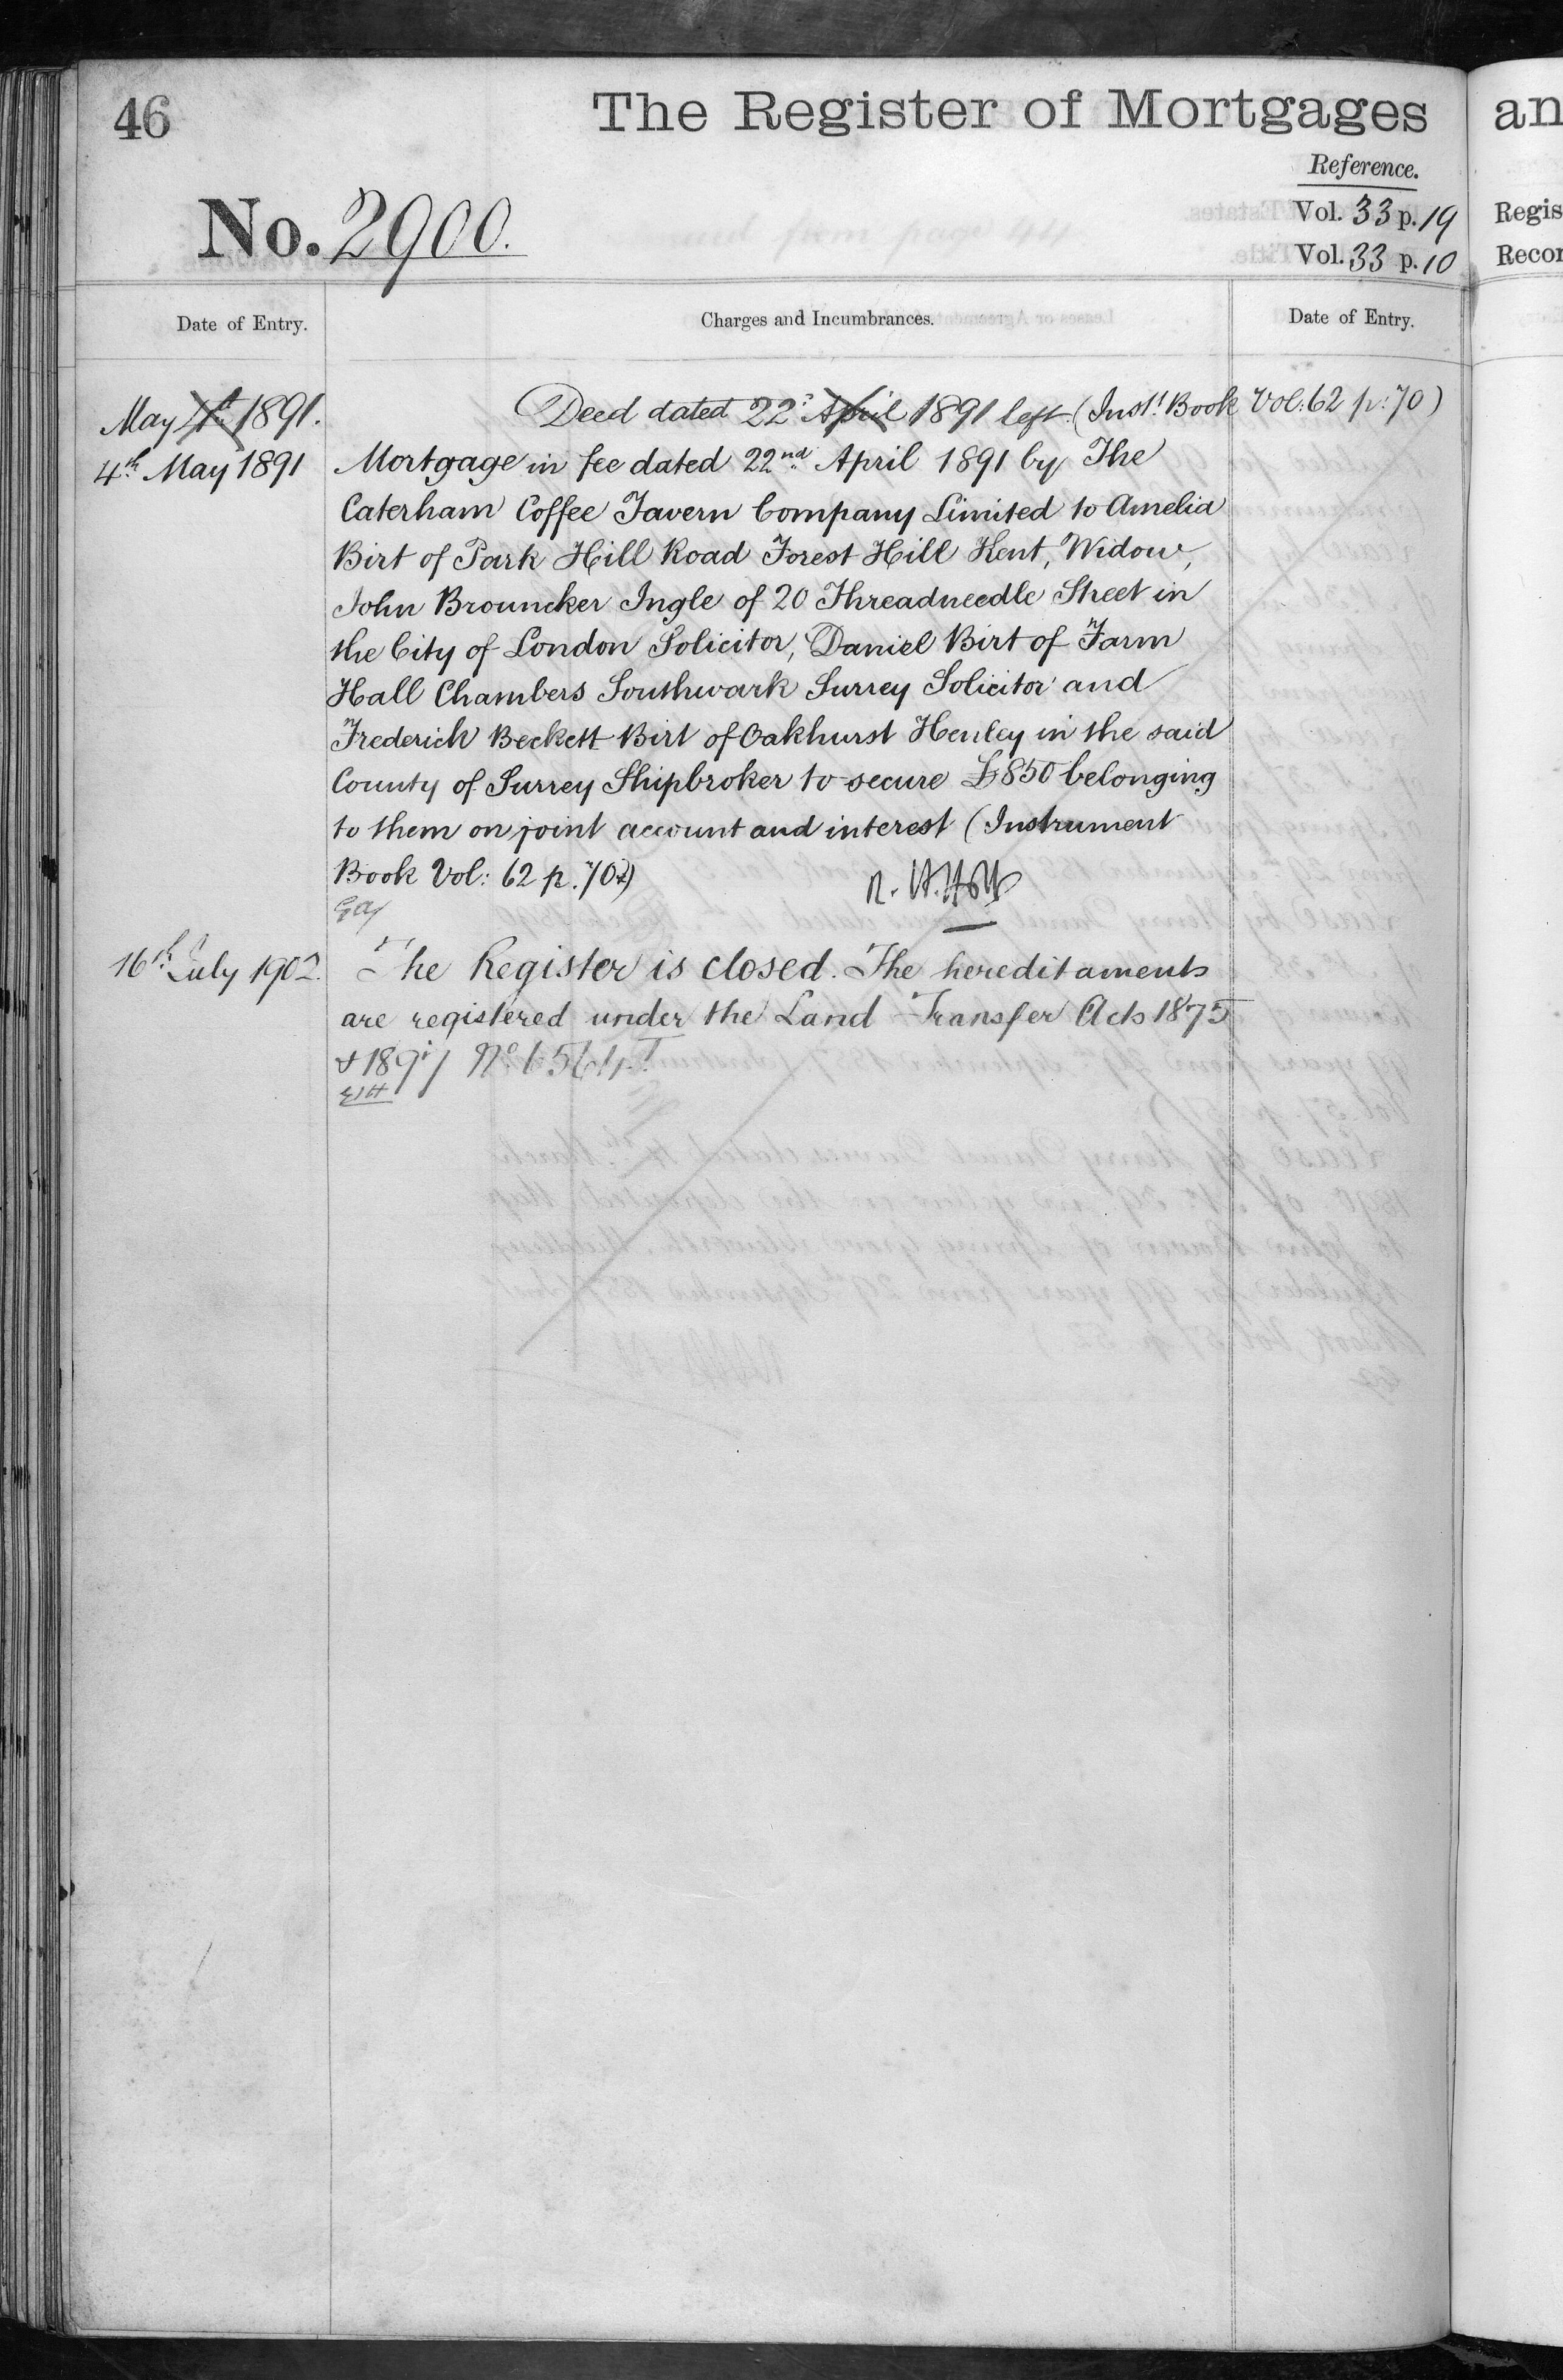 46
The Register of Mortgages
an
Reference.
No. 2900.
Vol. 33 p. 19
Regis
Vol. 33 p. 10
Recor
Date of Entry.
Charges and Incumbrances.
Date of Entry.
May 1st 1891.
Deed dated 22d April 1891 left. (Inst! Book Vol: 62 p: 70)
4th May 1891
Mortgage in fee dated 22nd April 1891 by The
Caterham Coffee Tavern Company Limited to Amelia
Birt of Park Hill Road Forest Hill Kent, Widow,
John Brouncker Ingle of 20 Threadneedle Street in
the City of London Solicitor, Daniel Birt of Farm
Hall Chambers Southwark Surrey Solicitor and
Frederick Beckett Birt of Oakhurst Henley in the said
County of Surrey Shipbroker to secure £850 belonging
to them on joint account and interest (Instrument
Book Vol: 62 p. 70)
16th July 1902.
The Register is closed. The hereditaments
are registered under the Land Transfer Acts 1875
& 1897 No. 6564